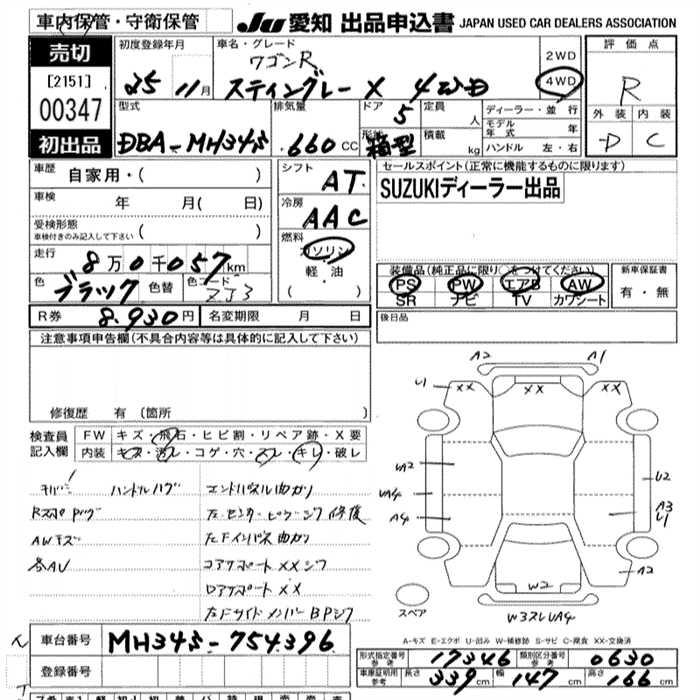 車内保管・守衛保管
JU 愛知 出品申込書 JAPAN USED CAR DEALERS ASSOCIATION
売切
[2151]
00347
初出品
初度登録年月
25 11月
車名・グレード
ワゴンR
スティングレー X 4WD
2WD
4WD
評価点
R
外装 内装
D C
型式
DBA-MH34S
排気量
.660 CC
ドア
5
形状
箱型
定員
人
積載
kg
ディーラー・並行
モデル年式 年
ハンドル 左・右
車歴
自家用・( )
車検
年 月( 日)
受検形態
車検付きのみ記入して下さい ( )
走行
8万0千057km
色
ブラック
色替
色コード
ZJ3
R券 8.930円
名変期限 月 日
シフト
AT
冷房
AAC
燃料
ガソリン
軽・油
( ・ )
セールスポイント(正常に機能するものに限ります)
SUZUKIディーラー出品
装備品(純正品に限り○をつけてください)
PS PW エアB AW
SR ナビ TV カワシート
新車保証書
有・無
後日品
注意事項申告欄(不具合内容等は具体的に記入して下さい)
修復歴 有(箇所
検査員
記入欄
FW キズ・飛石・ヒビ割・リペア跡・X要
内装 キズ・汚レ・コゲ・穴・スレ・キレ・破レ
ハンドルハゲ
AWキズ
エンドパネル曲がり
コアサポートXXシワ
A2 A1
U1 XX XX XX
UA2
UA4
A4
U2
A3
U1
A2
W2
W3スレUA4
スペア
A-キズ E-エクボ U-凹み W-補修跡 S-サビ C-腐食 XX-交換済
車台番号 MH34S-754396
登録番号
形式指定番号 参考 17346
類別区分番号 参考 0630
車庫証明用 参考
長さ 339cm
幅 147cm
高さ 166cm